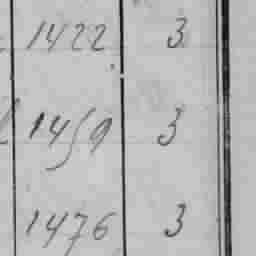 1422 3
1459 3
1476 3